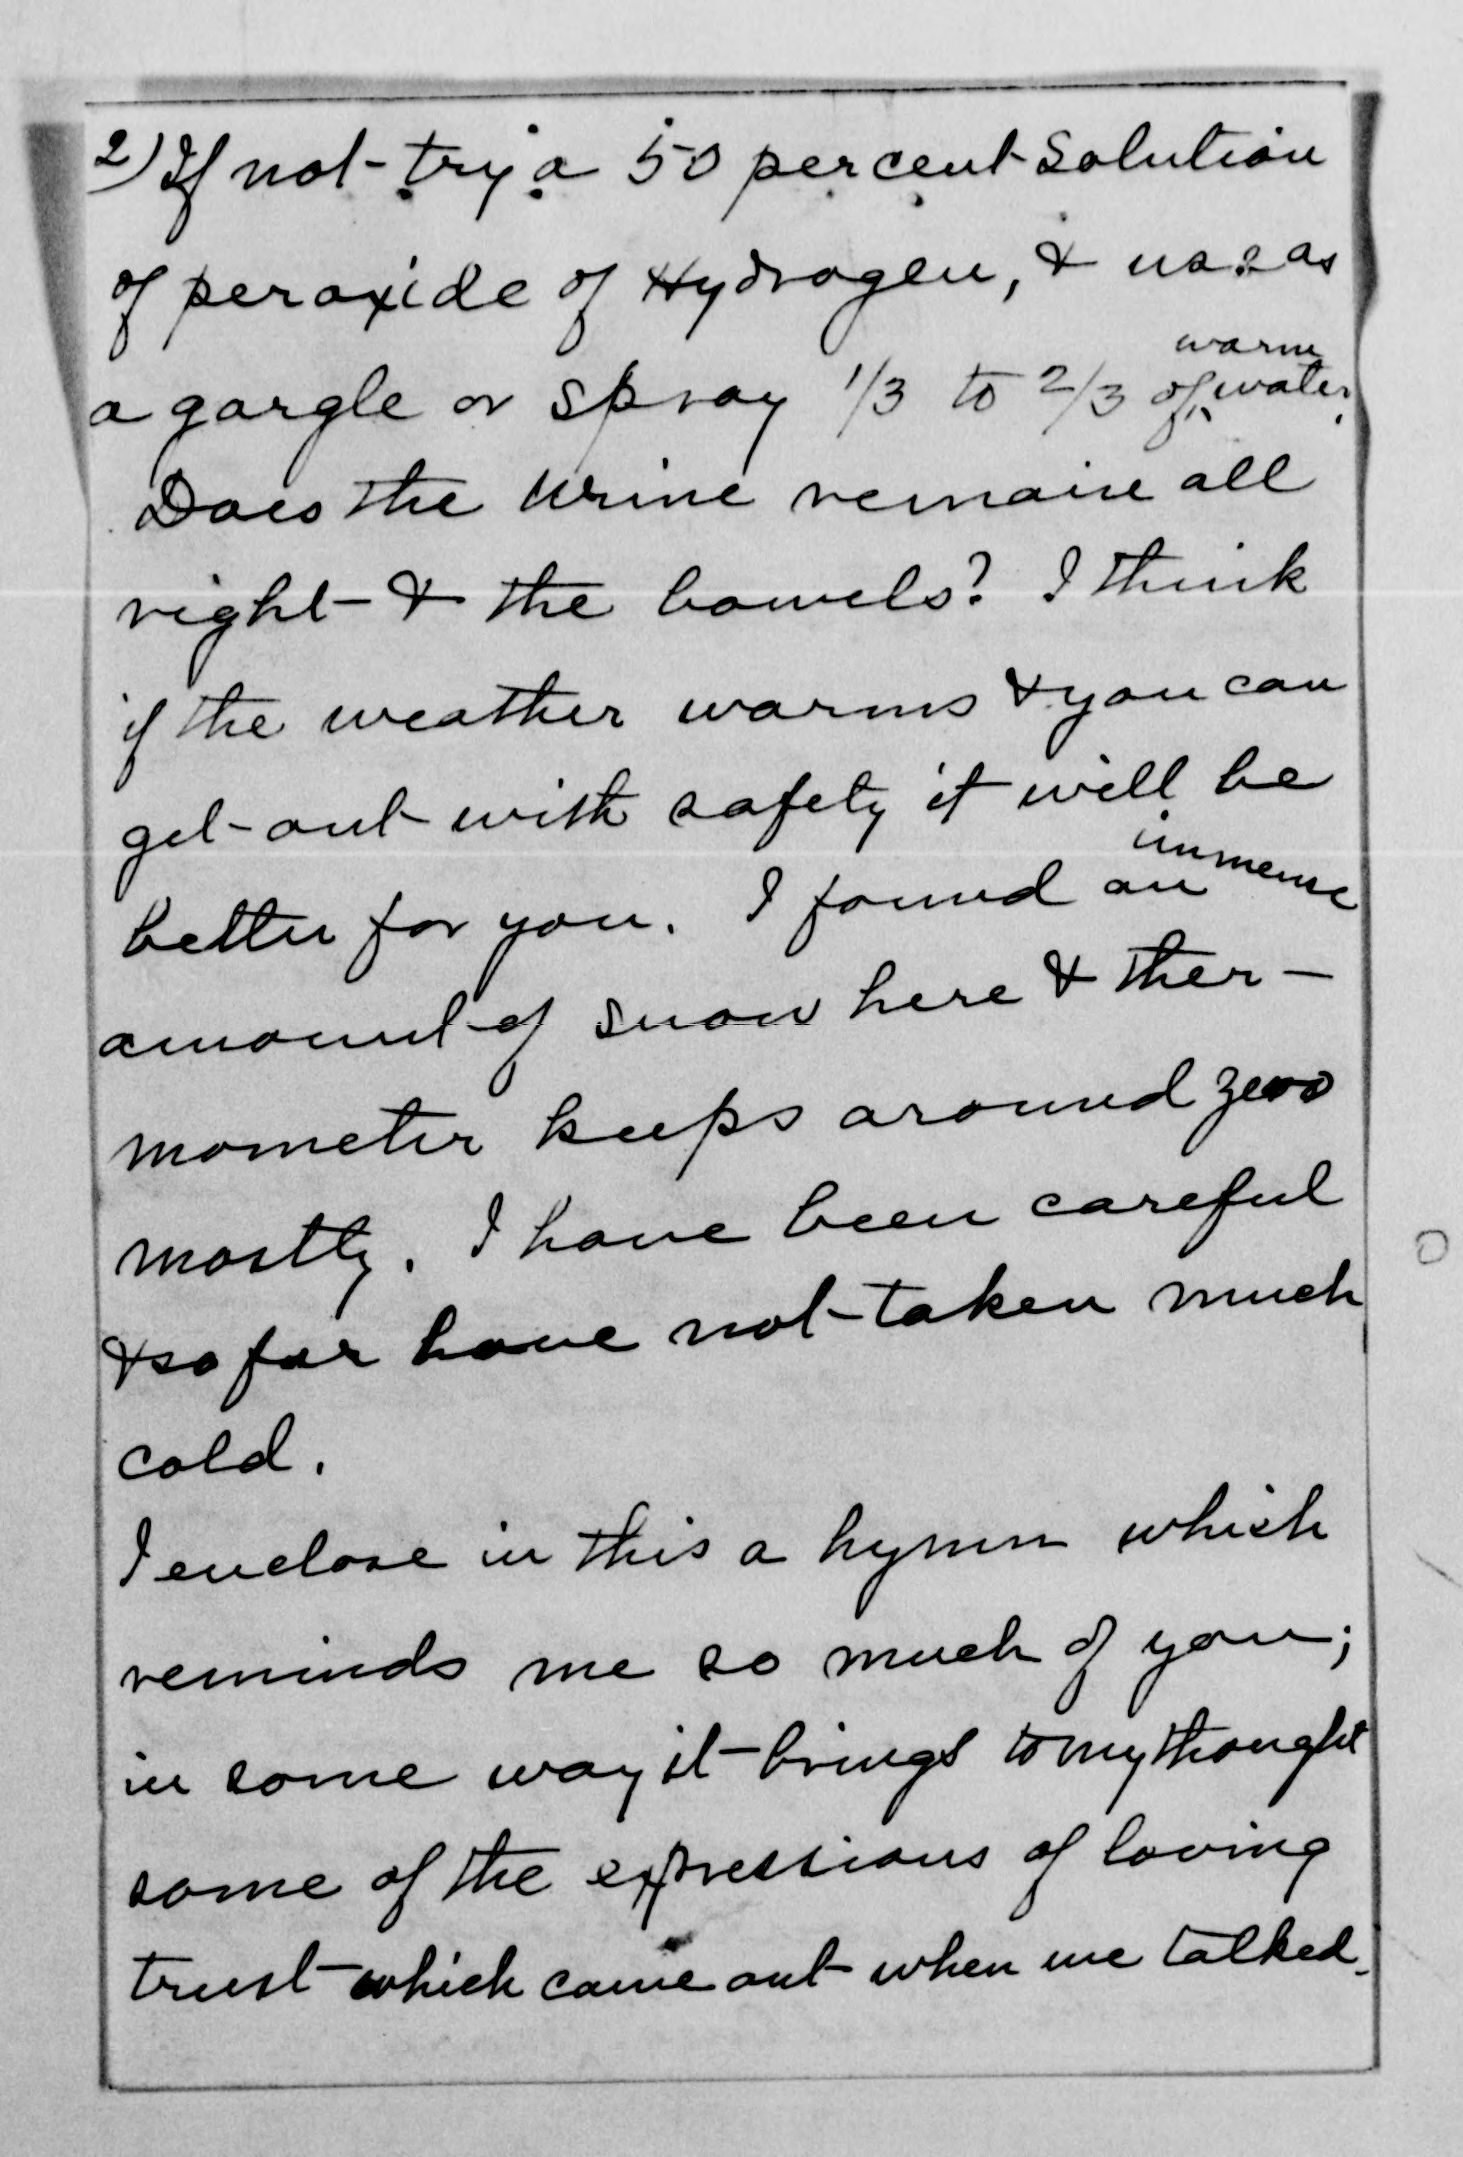 2) If not try a 50 percent solution
of peroxide of Hydrogen, & use as
a gargle or spray 1/3 to 2/3 of warm water.
Does the urine remain all
right & the bowels? I think
if the weather warms & you can
get out with safety it will be
better for you. I found an immense
amount of snow here & ther-
mometer keeps around zero
mostly. I have been careful
& so far have not taken much
cold.
I enclose in this a hymn which
reminds me so much of you;
in some way it brings to my thought
some of the expressions of loving
trust which came out when we talked.